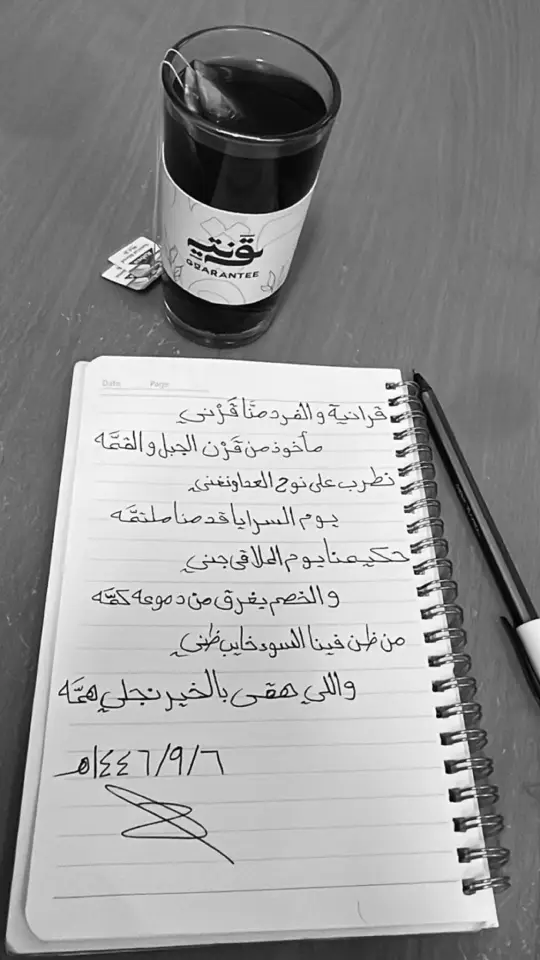 قنتيه
GRARANTEE
Date Page
قرانية والفرد منّا قَرْني
مأخوذ من قَرْن الجبل والقمَّه
نطرب على نوح العدا ونغني
يوم السرايا قدمنا ملتمَّه
حكيمنا يوم الملاقى جني
والخصم يغرق من دموعه كمَّه
من ظن فينا السود خايب ظني
واللي هقى بالخير نجلي همَّه
١٤٤٦/٩/٦هـ